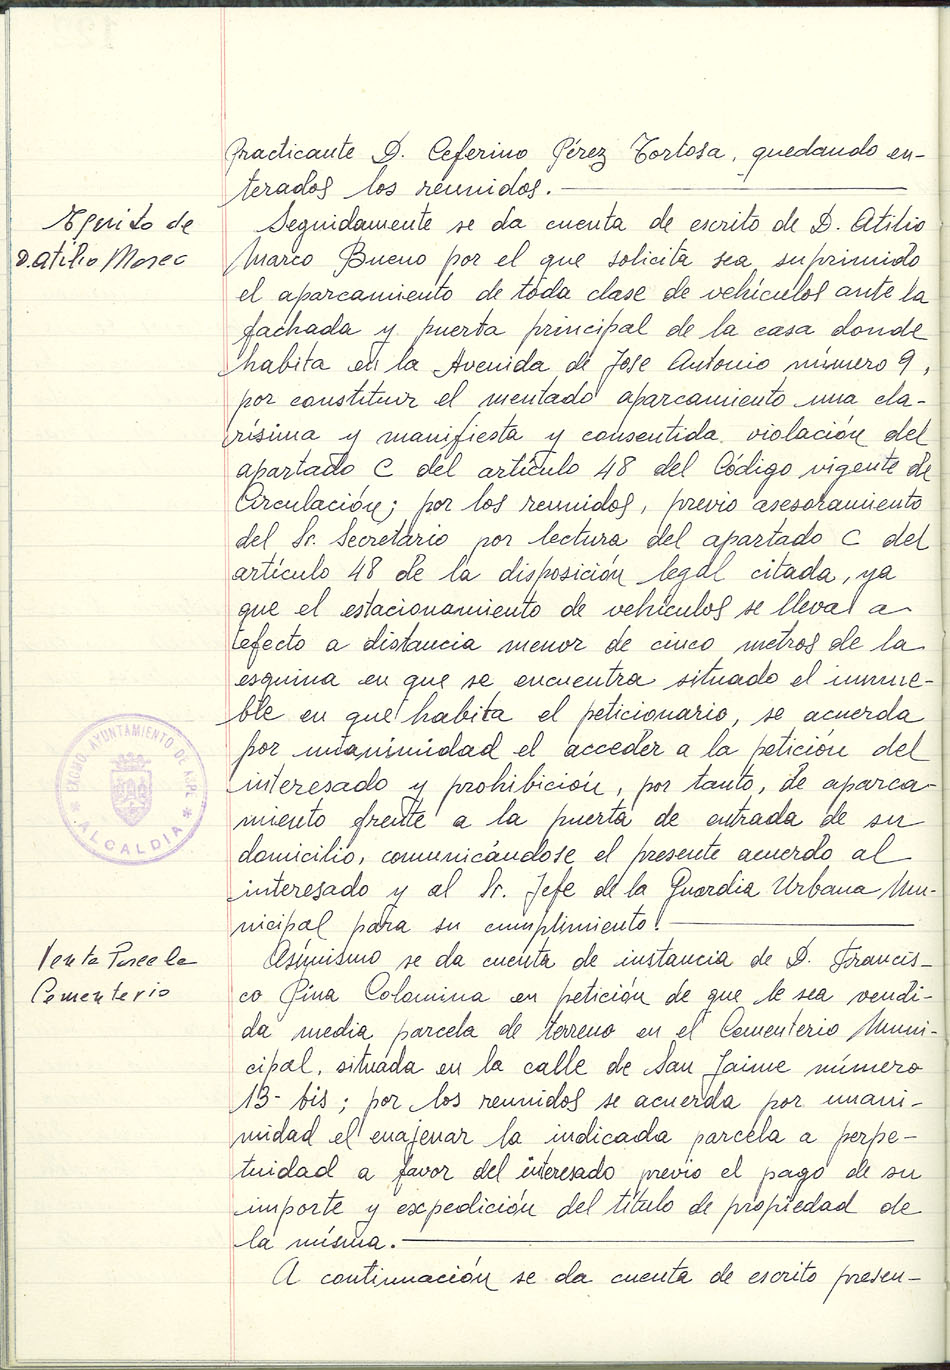 Practicante D. Ceferino Pérez Tortosa, quedando en-
terados los reunidos.
Escrito de
D. Atilio Marco
Seguidamente se da cuenta de escrito de D. Atilio
Marco Bueno por el que solicita sea suprimido
el aparcamiento de toda clase de vehículos ante la
fachada y puerta principal de la casa donde
habita en la Avenida de Jose Antonio número 9,
por constituir el mentado aparcamiento una cla-
rísima y manifiesta y consentida violación del
apartado C del artículo 48 del Código vigente de
Circulación; por los reunidos, previo asesoramiento
del Sr. Secretario por lectura del apartado C del
artículo 48 de la disposición legal citada, ya
que el estacionamiento de vehículos se lleva a
efecto a distancia menor de cinco metros de la
esquina en que se encuentra situado el inmue-
ble en que habita el peticionario, se acuerda
por unanimidad el acceder a la petición del
interesado y prohibición, por tanto, de aparca-
miento frente a la puerta de entrada de su
domicilio, comunicándose el presente acuerdo al
interesado y al Sr. Jefe de la Guardia Urbana Mu-
nicipal para su cumplimiento.
EXCMO. AYUNTAMIENTO DE ASPE
* ALCALDIA *
Venta Parcela
Cementerio
Asimismo se da cuenta de instancia de D. Francis-
co Pina Colomina en petición de que le sea vendi-
da media parcela de terreno en el Cementerio Muni-
cipal, situada en la calle de San Jaime número
13-bis; por los reunidos se acuerda por unani-
midad el enajenar la indicada parcela a perpe-
tuidad a favor del interesado previo el pago de su
importe y expedición del título de propiedad de
la misma.
A continuación se da cuenta de escrito presen-